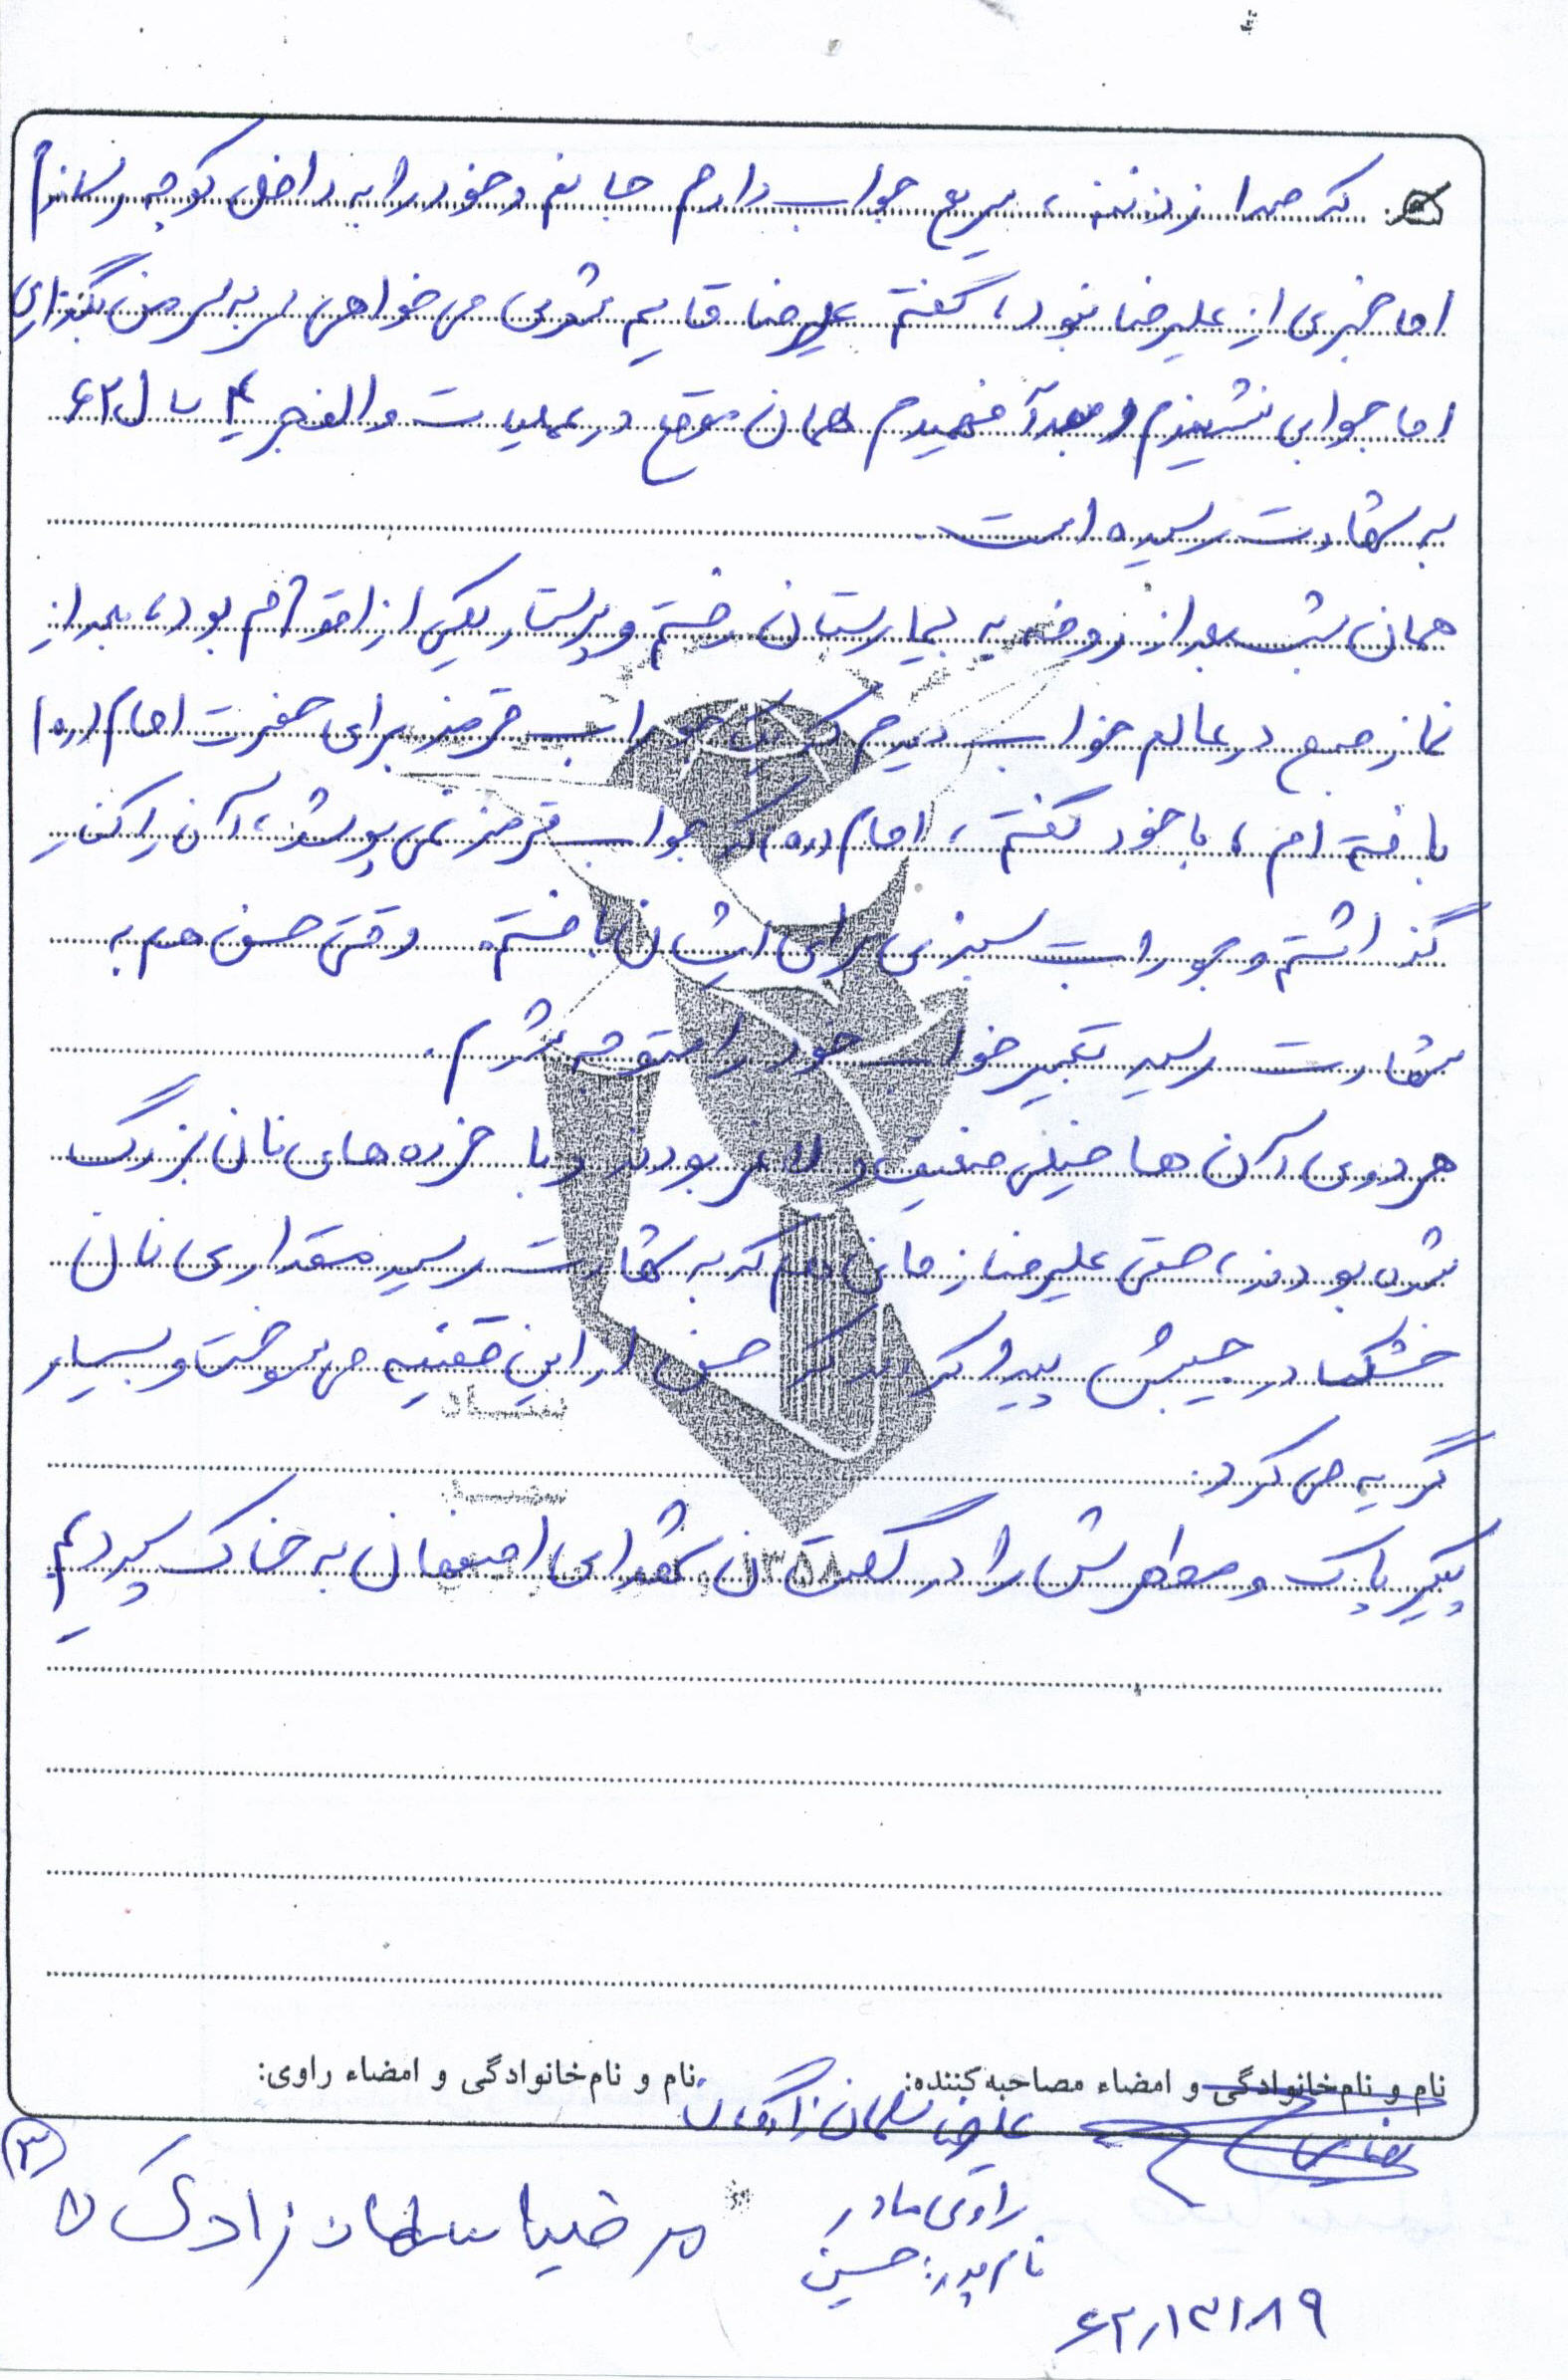 که صدا زد ننه، سریع جواب دادم جانم و خود را به داخل کوچه رساندم
اما خبری از علیرضا نبود، گفتم علیرضا قایم شدی می خواهی سر به سر من بگذاری
اما جوابی نشنیدم و بعداً فهمیدم همان موقع در عملیات والفجر ۴ سال ۶۲
به شهادت رسیده است
همان شب بعد از روضه به بیمارستان رفتم و پرستار یکی از اقوامم بود، بعد از
نماز صبح در عالم خواب دیدم که یک جوراب قرمز برای حضرت امام (ره)
بافته ام، با خود گفتم، امام (ره) که جوراب قرمز نمی پوشد، آن را کنار
گذاشتم و جوراب سبزی برای ایشان بافتم. وقتی حسن هم به
شهادت رسید تعبیر خواب خود را متوجه شدم.
هر دوی آن ها خیلی ضعیف و لاغر بودند و با خرده های نان بزرگ
شده بودند، حتی علیرضا زمانی هم که به شهادت رسید مقداری نان
خشک در جیبش پیدا کردند که حسن از این قضیه می سوخت و بسیار
گریه می کرد.
پیکر پاک و مطهرش را در گلستان شهدای اصفهان به خاک سپردیم
بنیاد
شهید
۱۳۵۸
نام و نام‌خانوادگی و امضاء مصاحبه‌کننده:
نام و نام‌خانوادگی و امضاء راوی:
علیرضا سلمان زادگان
راوی مادر
نام پدر: حسین
مرضیا سلمان زادگان
۳
۶۲٫۱۳۱۸۹